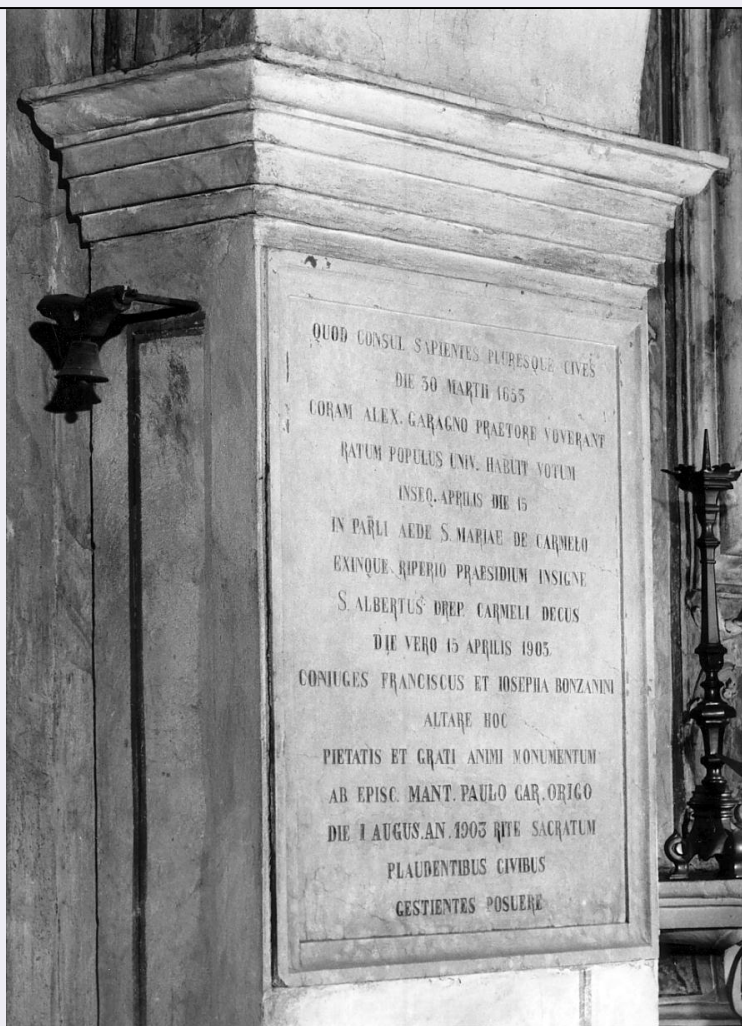 QUOD CONSUL SAPIENTES PLURESQUE CIVES
DIE 30 MARTII 1653
CORAM ALEX. GARAGNO PRAETORE VOVERANT
RATUM POPULUS UNIV. HABUIT VOTUM
INSEQ. APRILIS DIE 15
IN PARLI AEDE S. MARIAE DE CARMELO
EXINQUE RIPERIO PRAESIDIUM INSIGNE
S. ALBERTUS DREP. CARMELI DECUS
DIE VERO 15 APRILIS 1903
CONIUGES FRANCISCUS ET IOSEPHA BONZANINI
ALTARE HOC
PIETATIS ET GRATI ANIMI MONUMENTUM
AB EPISC. MANT. PAULO CAR. ORIGO
DIE 1 AUGUS. AN. 1903 RITE SACRATUM
PLAUDENTIBUS CIVIBUS
GESTIENTES POSUERE